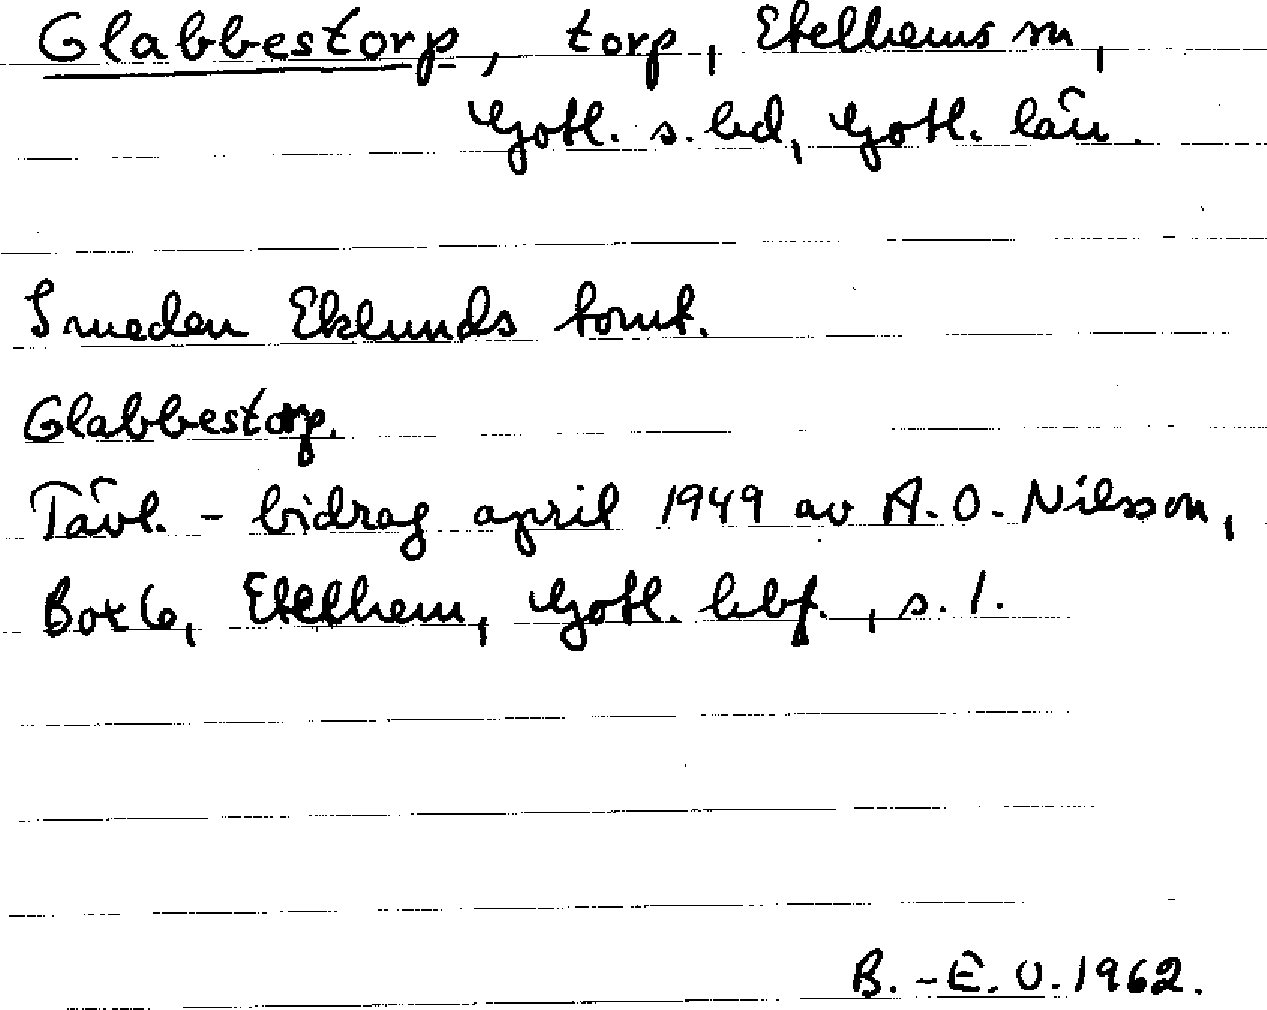 Glabbestorp, torp, Etelhems sn,
Gotl. s. hd, Gotl. län.
Smeden Eklunds tomt.
Glabbestorp.
Tävl. - bidrag april 1949 av A. O. Nilsson,
Box 6, Etelhem, Gotl. hbf., s. 1.
B.-E. O. 1962.